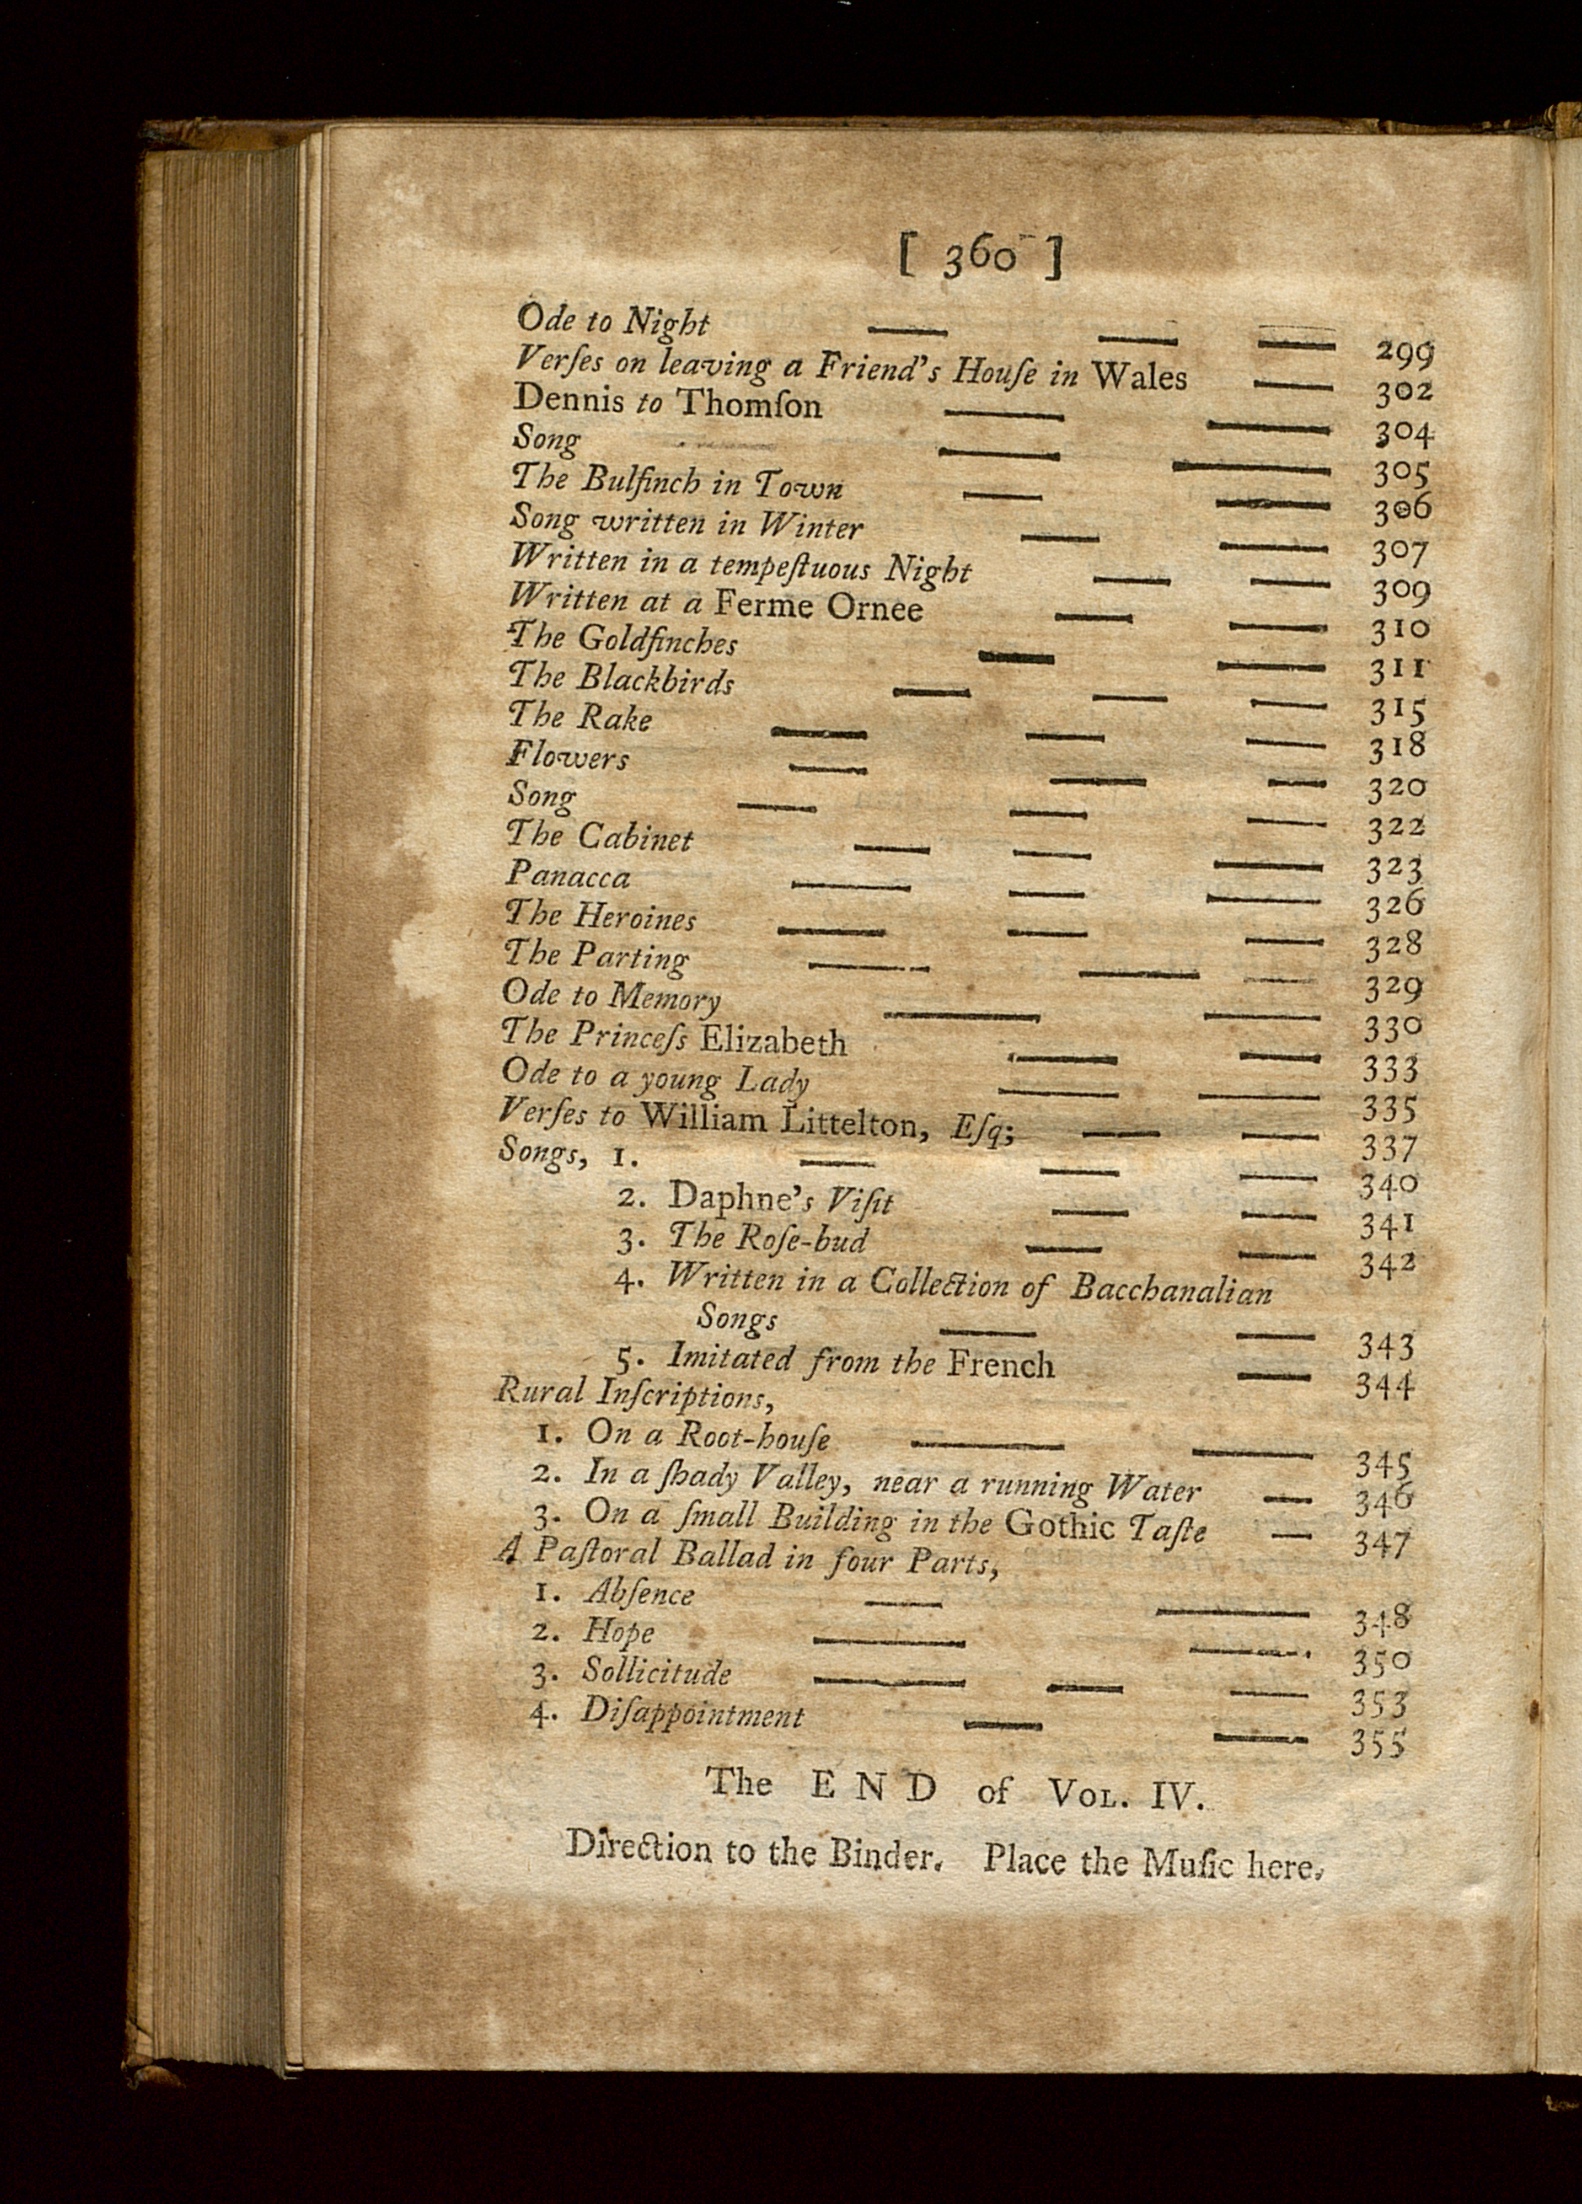 [ 360 ]
Ode to Night — — — 299
Verſes on leaving a Friend's Houſe in Wales — 302
Dennis to Thomſon — — 304
Song — — 305
The Bulfinch in Town — — 306
Song written in Winter — — 307
Written in a tempeſtuous Night — — 309
Written at a Ferme Ornee — — 310
The Goldfinches — — 311
The Blackbirds — — — 315
The Rake — — — 318
Flowers — — — 320
Song — — — 322
The Cabinet — — — 323
Panacca — — — 326
The Heroines — — — 328
The Parting — — — 329
Ode to Memory — — 330
The Princeſs Elizabeth — — 333
Ode to a young Lady — — 335
Verſes to William Littelton, Eſq; — — 337
Songs, 1. — — — 340
2. Daphne's Viſit — — 341
3. The Roſe-bud — — 342
4. Written in a Collection of Bacchanalian
Songs — — 343
5. Imitated from the French — 344
Rural Inſcriptions,
1. On a Root-houſe — — 345
2. In a ſhady Valley, near a running Water — 346
3. On a ſmall Building in the Gothic Taſte — 347
A Paſtoral Ballad in four Parts,
1. Abſence — — 348
2. Hope — — 350
3. Sollicitude — — — 353
4. Diſappointment — — 355
The END of VOL. IV.
Direction to the Binder. Place the Muſic here.